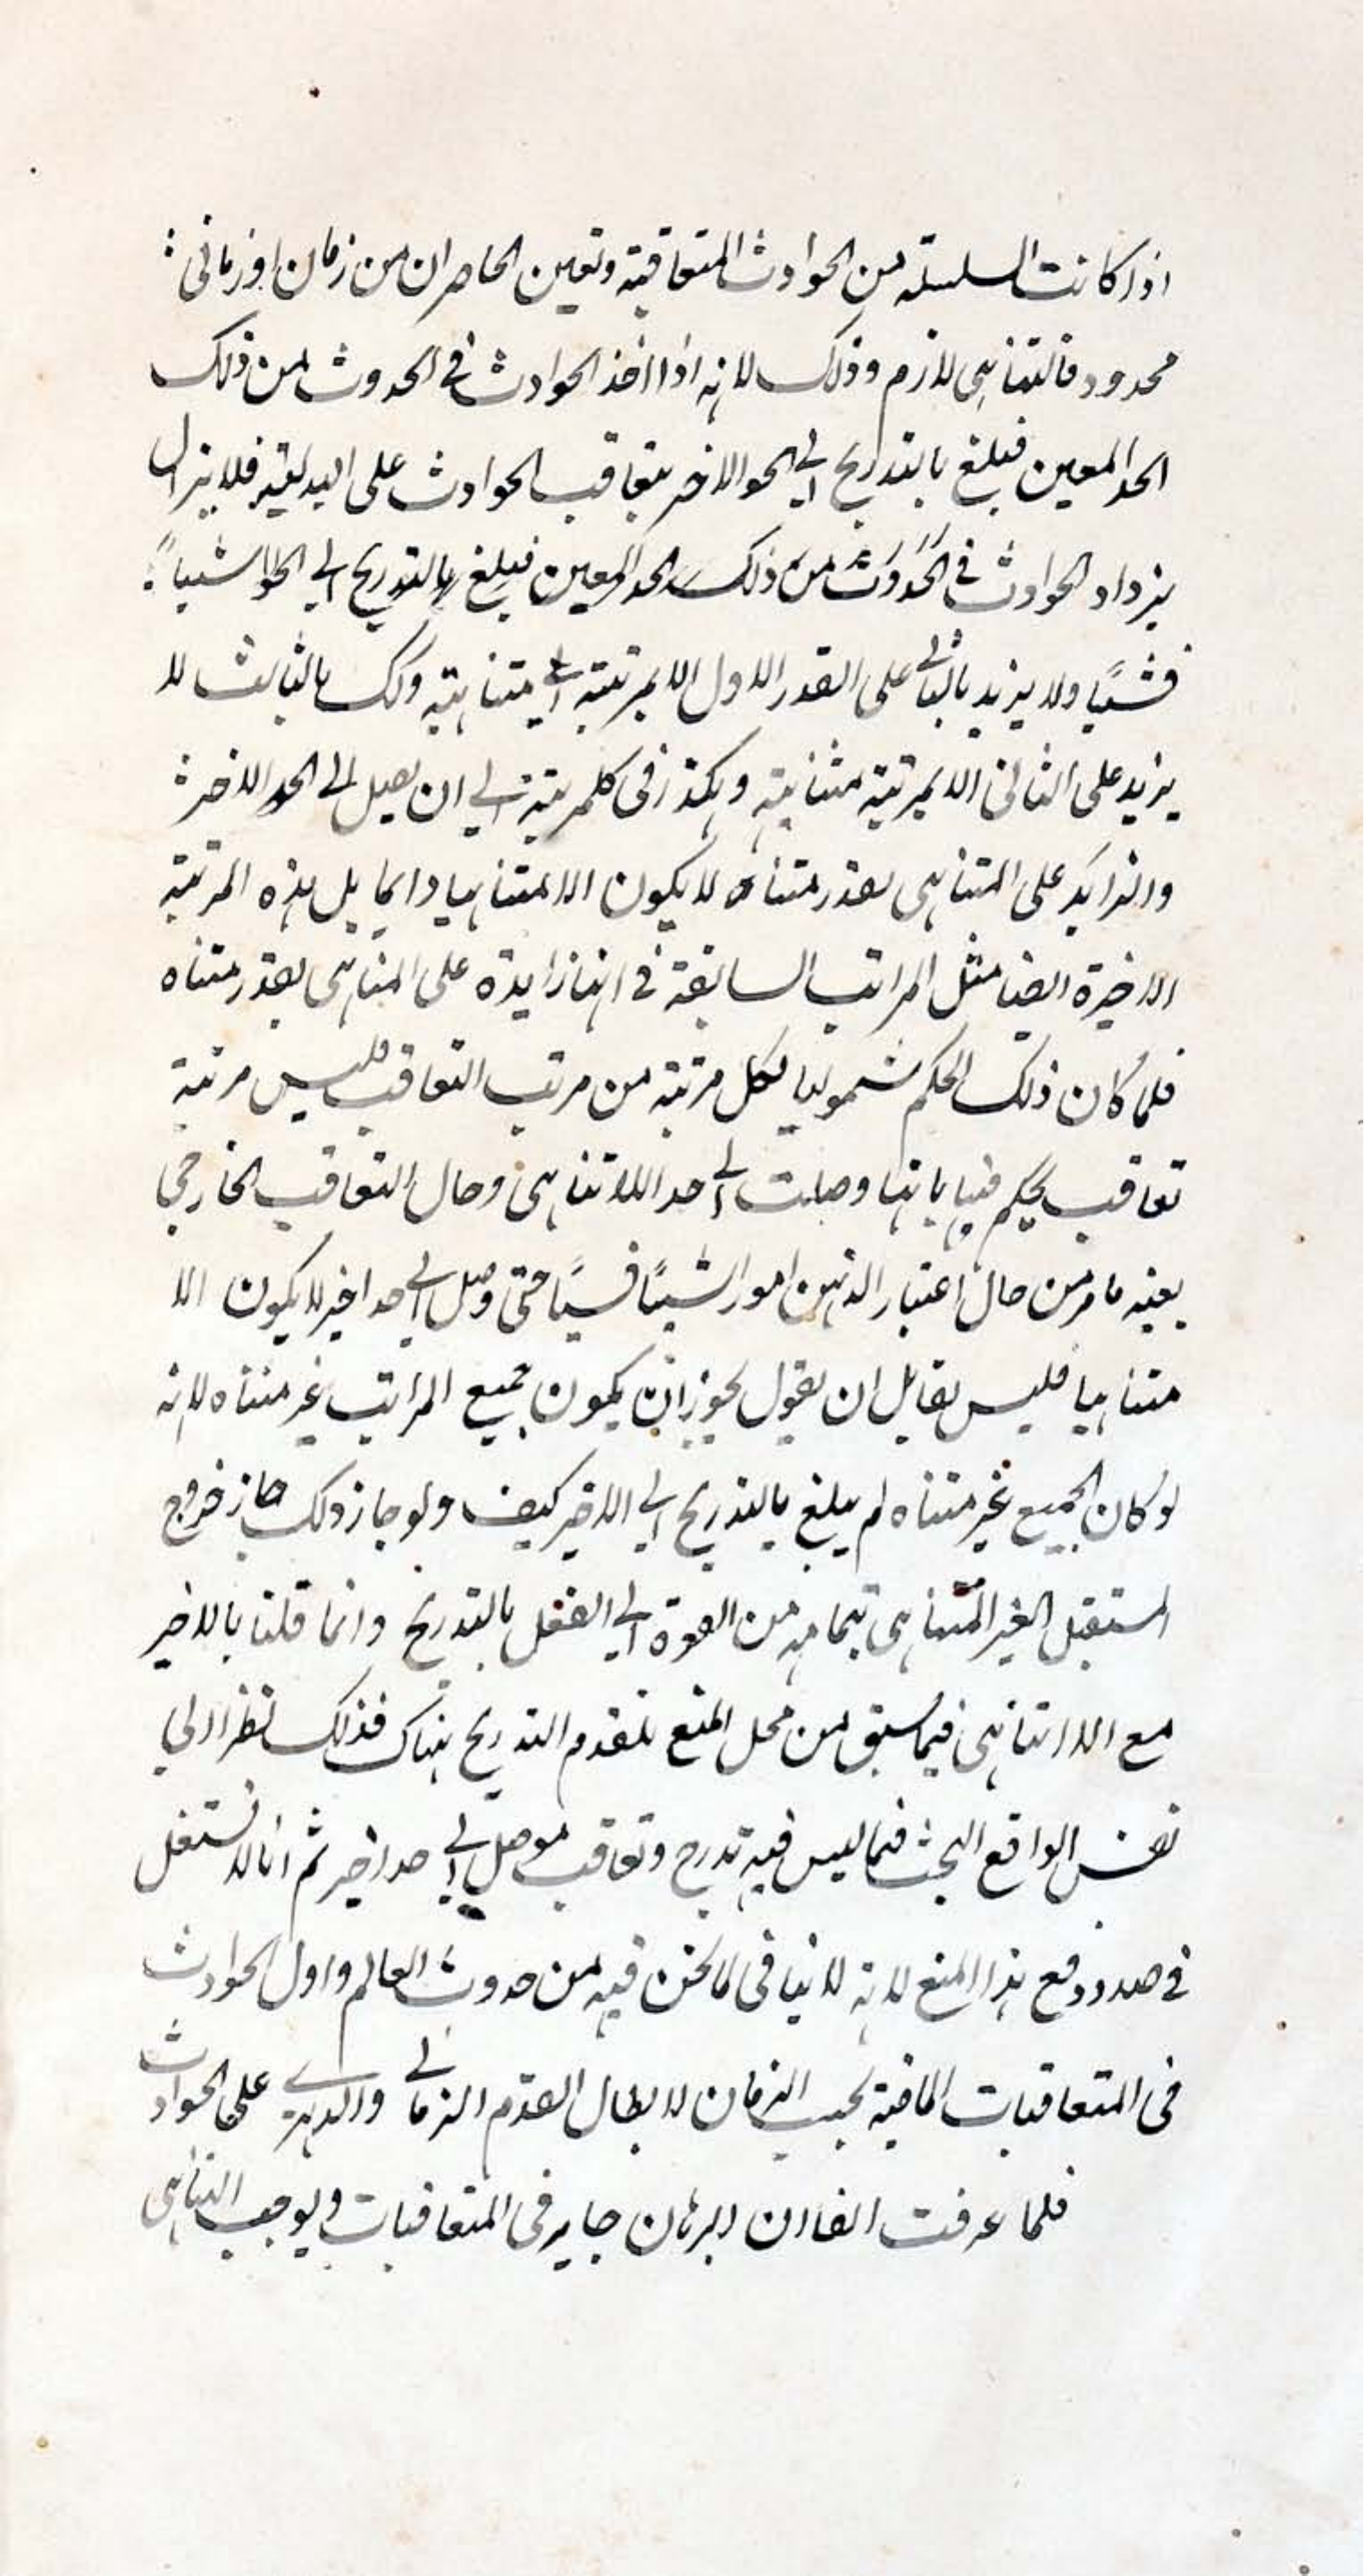 اذا كانت السلسلة من الحوادث المتعاقبة وتعين الحاصران من زمان او زمانى
محدود فالتناهى لازم وذلك لانه اذا اخذ الحوادث فى الحدوث من ذلك
الحد المعين فبلغ بالتدريج الى الحد الاخر بتعاقب الحوادث على البدلية فلا يزال
يزداد الحوادث فى الحدوث من ذلك الحد المعين فيبلغ بالتدريج الى الحد شيئا
فشيئا ولا يزيد بالثانى على القدر الاول الا بمرتبة متناهية وكك بالثالث لا
يزيد على الثانى الا بمرتبة متناهية وهكذا فى كل مرتبة الى ان يصل الى الحد الاخر
والزايد على المتناهى بقدر متناه لا يكون الا متناهيا دايما بل هذه المرتبة
الاخيرة ايضا مثل المراتب السابقة فى انها زايدة على المتناهى بقدر متناه
فلما كان ذلك الحكم شموليا لكل مرتبة من مرتب التعاقب فليس مرتبة
تعاقب يحكم فيها بانها وصلت الى حد اللاتناهى وحال التعاقب الخارجى
بعينه ما مر من حال اعتبار الذهن امورا شيئا فشيئا حتى وصل الى حد اخير لا يكون الا
متناهيا فليس لقايل ان يقول يجوز ان يكون جميع المراتب غير متناه لانه
لو كان الجميع غير متناه لم يبلغ بالتدريج الى الاخير كيف ولو جاز ذلك جاز خروج
المستقبل الغير المتناهى بتمامه من القوة الى الفعل بالتدريج وانما قلنا بالاخير
مع اللاتناهى فيما سبق من محل المنع بلقدم التدريج هناك فذلك نظرا الى
نفس الواقع البحث فيما ليس فيه تدرج وتعاقب موصل الى حد اخير ثم انا لا نشتغل
فى صدد دفع هذا المنع لانه لا ينافى لما نحن فيه من حدوث العالم واول الحوادث
فى المتعاقبات الماضية بحسب الزمان لابطال القدم الزمانى والدهرى على الحوادث
فلما عرفت انفا ان البرهان جاير فى المتعاقبات ويوجب التناهى